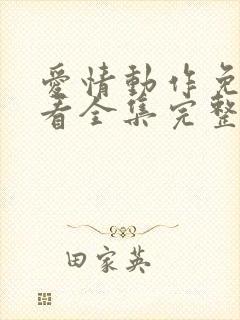 愛情動作免
看全集完整
田家英